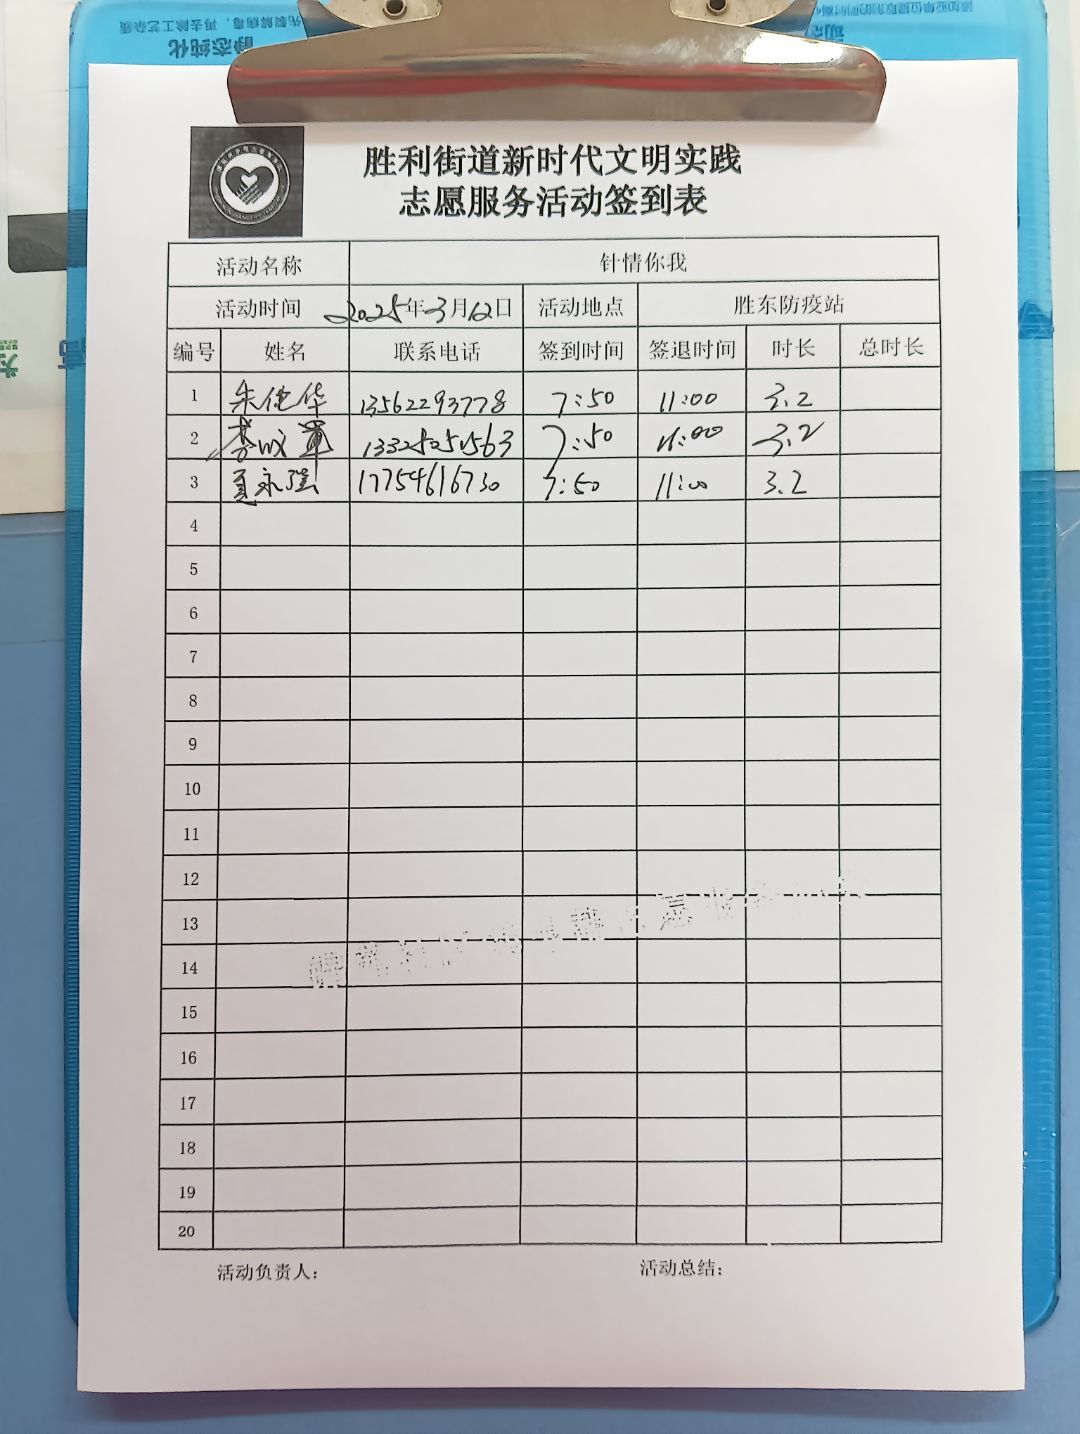 静态纯化
胜利街道新时代文明实践
志愿服务活动签到表
活动名称 针情你我
活动时间 2025年3月12日 活动地点 胜东防疫站
编号 姓名 联系电话 签到时间 签退时间 时长 总时长
1 朱德华 13562293778 7:50 11:00 3.2
2 7:50 11:00 3.2
3 夏永强 17754616730 7:50 11:00 3.2
4
5
6
7
8
9
10
11
12
13
14
15
16
17
18
19
20
活动负责人: 活动总结: